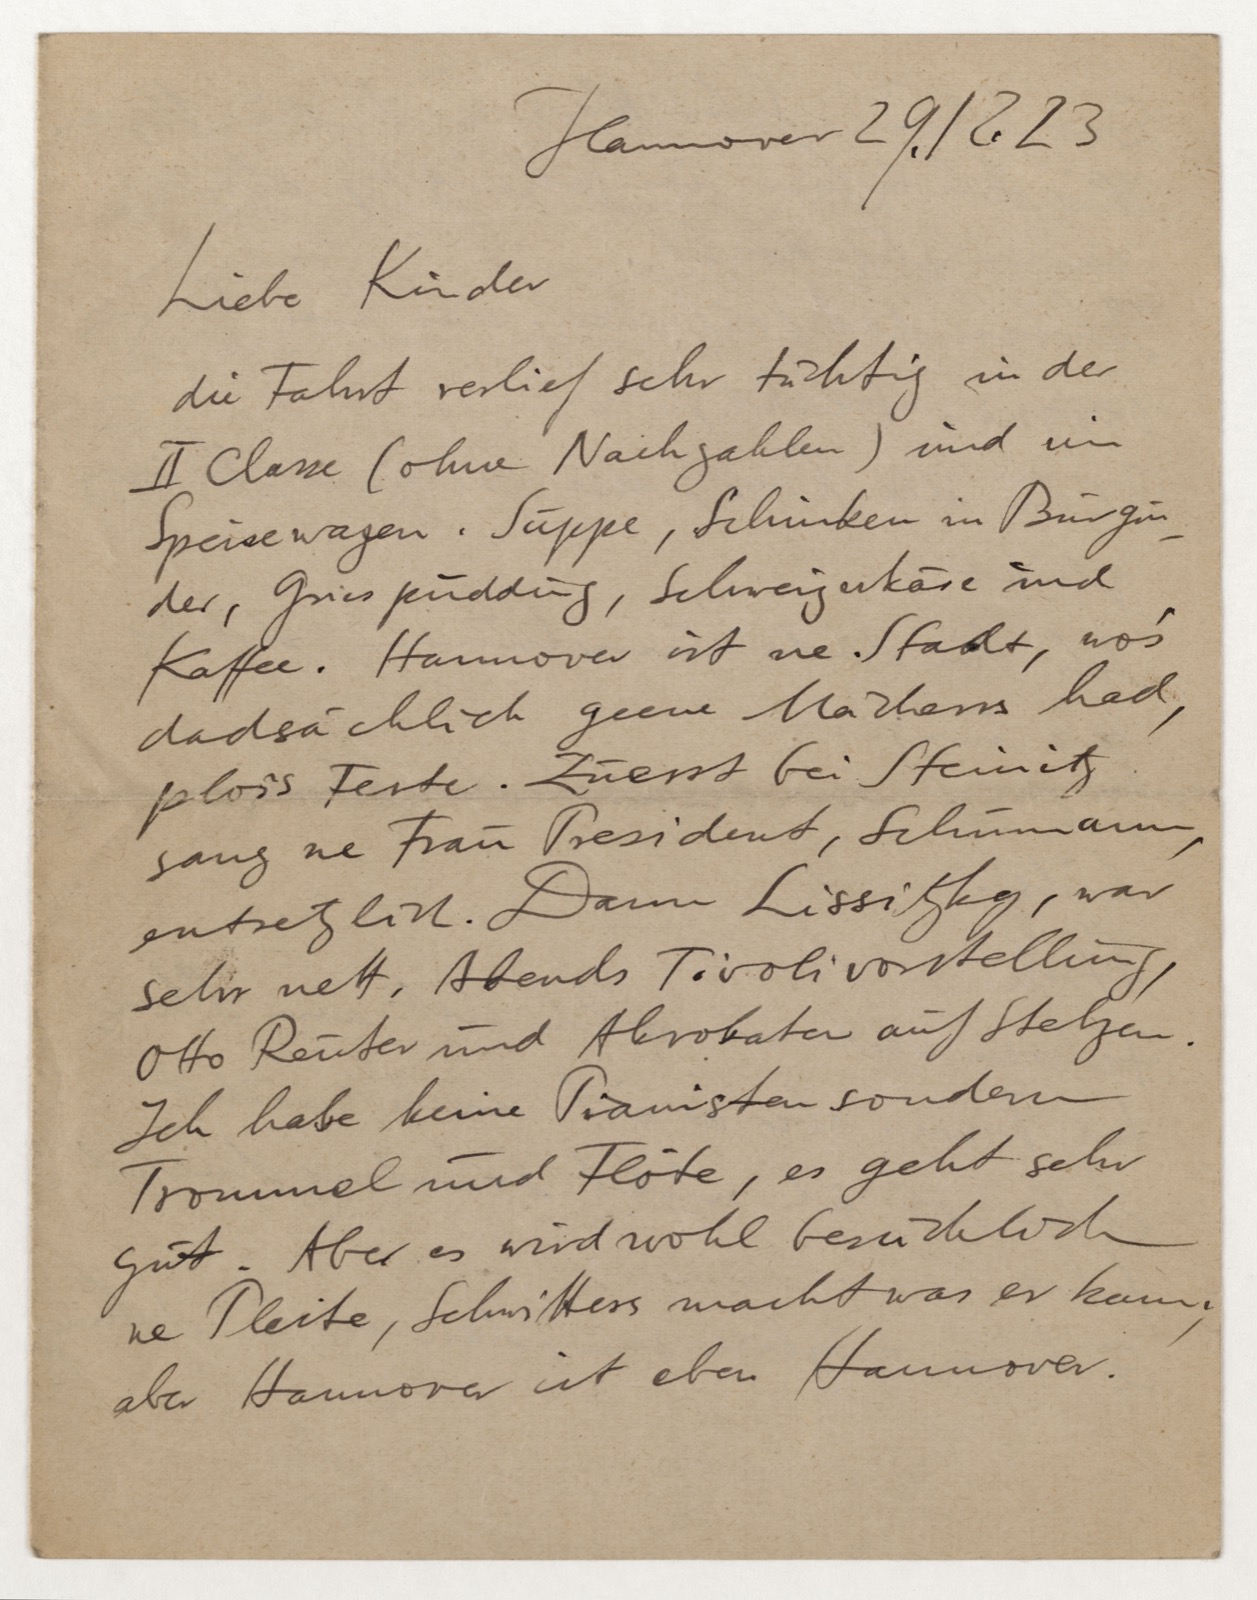 Hannover 29./2.23
Liebe Kinder
die Fahrt verlief sehr tüchtig in der
II Classe (ohne Nachzahlen) und im
Speisewagen. Suppe, Schinken in Burgun-
der, Griespudding, Schweizerkäse und
Kaffee. Hannover ist ne Stadt, wo's
dadsächlich geene Mächens had,
plois Feste. Zuerst bei Steinitz
sang ne Frau President, Schumann,
entsetzlich. Dann Lissitzky, war
sehr nett. Abends Tivolivorstellung,
Otto Reuter und Akrobaten auf Stelzen.
Ich habe keine Pianisten sondern
Trommel und Flöte, es geht sehr
gut. Aber es wird wohl besuchlich
ne Pleite, Schwitters macht was er kann,
aber Hannover ist eben Hannover.